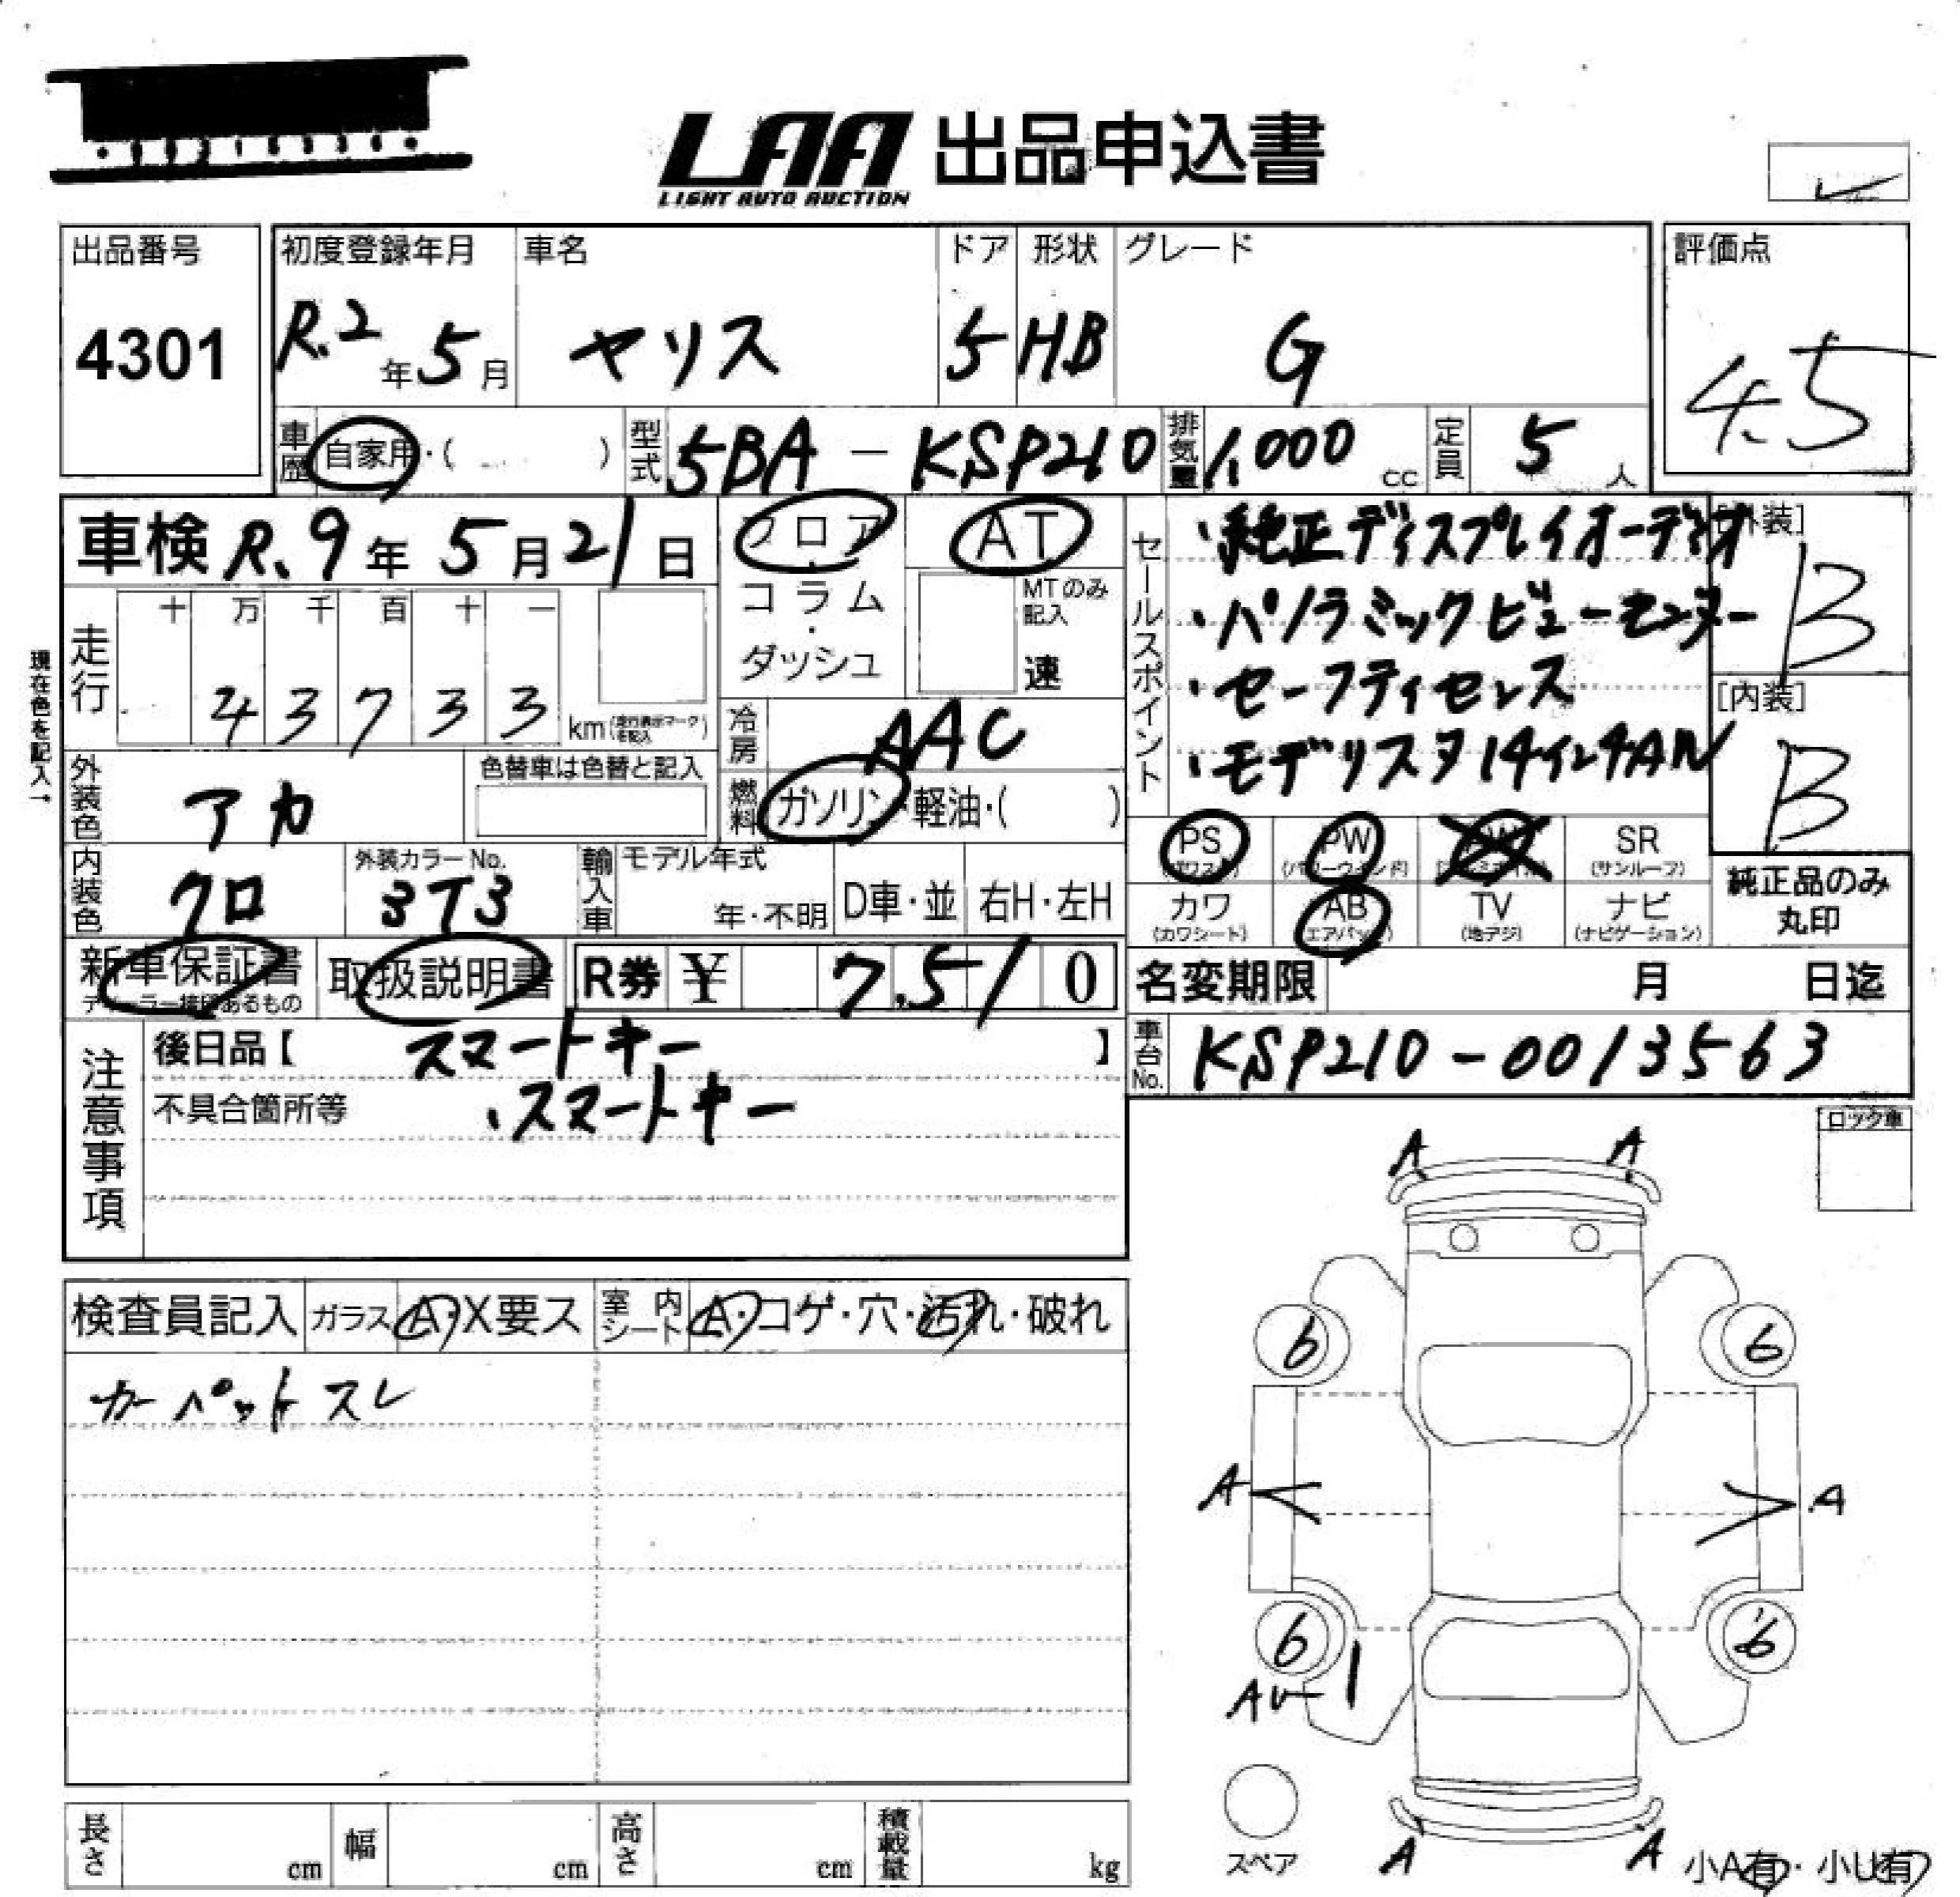 LAA 出品申込書
LIGHT AUTO AUCTION
出品番号 初度登録年月 車名 ドア 形状 グレード 評価点
4301 R.2年5月 ヤリス 5 HB G 4.5
車歴 自家用・( ) 型式 5BA-KSP210 排気量 1,000 cc 定員 5人
車検 R.9年5月21日 フロア・コラム・ダッシュ AT
MTのみ記入 速
走行 十 万 千 百 十 一
4 3 7 3 3 km(走行表示マークを記入)
現在色を記入→
冷房 AAC
外装色 アカ 色替車は色替と記入
燃料 ガソリン・軽油・( )
内装色 クロ 外装カラーNo. 3T3 輸入車 モデル年式 年・不明 D車・並 右H・左H
セールスポイント
・純正ディスプレイオーディオ
・パノラミックビューモニター
・セーフティセンス
・モデリスタ14インチAW
[外装] B
[内装] B
PS(パワステ) PW(パワーウインド) AW SR(サンルーフ)
カワ(カワシート) AB(エアバッグ) TV(地デジ) ナビ(ナビゲーション)
純正品のみ丸印
新車保証書 取扱説明書 R券 ¥ 7,510
ディーラー捺印あるもの
名変期限 月 日迄
車台No. KSP210-0013563
注意事項
後日品【 スマートキー 】
不具合箇所等 ・スマートキー
ロック車
検査員記入 ガラス A・X要ス 室内シート A・コゲ・穴・汚れ・破れ
カーペットスレ
A A
6 6
A A
6 6
AU
スペア
A A
小A有・小U有
長さ cm 幅 cm 高さ cm 積載量 kg